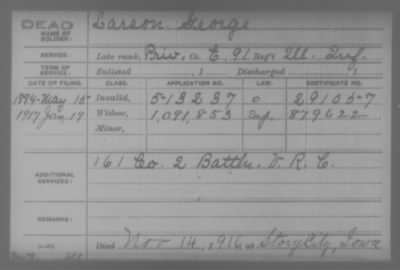 DEAD
NAME OF SOLDIER: Larson George
SERVICE: Late rank, Priv., Co. E, 91 Reg't Ill. Inf.
TERM OF SERVICE: Enlisted , 1 Discharged , 1
DATE OF FILING. CLASS. APPLICATION NO. LAW. CERTIFICATE NO.
1884-May 15 Invalid, 513237 29105-7
1917 Jan 19 Widow, 1,091,853 879622
Minor,
ADDITIONAL SERVICES: 161 Co. 2 Battln. V. R. C.
REMARKS:
Died Nov 14, 1916, at Story City, Iowa